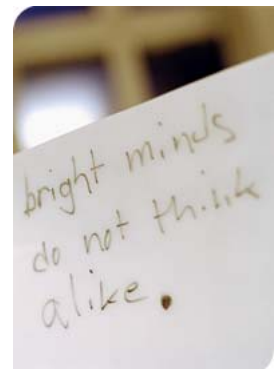 bright minds
do not think
alike.